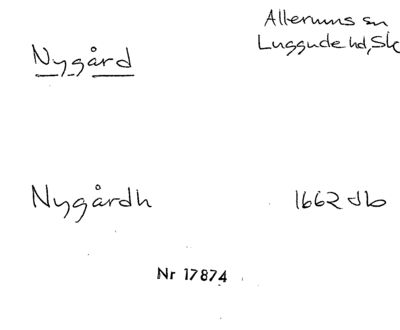 Nygård
Allerums sn
Luggude hd, Sk
Nygårdh
1662 db
Nr 17874